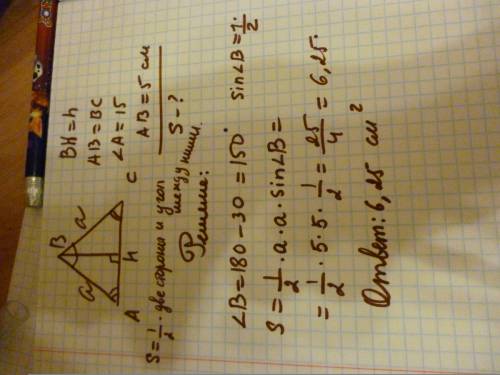 B
a
a
A
h
C
BH = h
AB = BC
∠A = 15
AB = 5 см
S - ?
S = 1/2 · две стороны и угол
между ними.
Решение:
∠B = 180 - 30 = 150° sin∠B = 1/2
S = 1/2 · a · a · sin∠B =
= 1/2 · 5 · 5 · 1/2 = 25/4 = 6,25.
Ответ: 6,25 см²